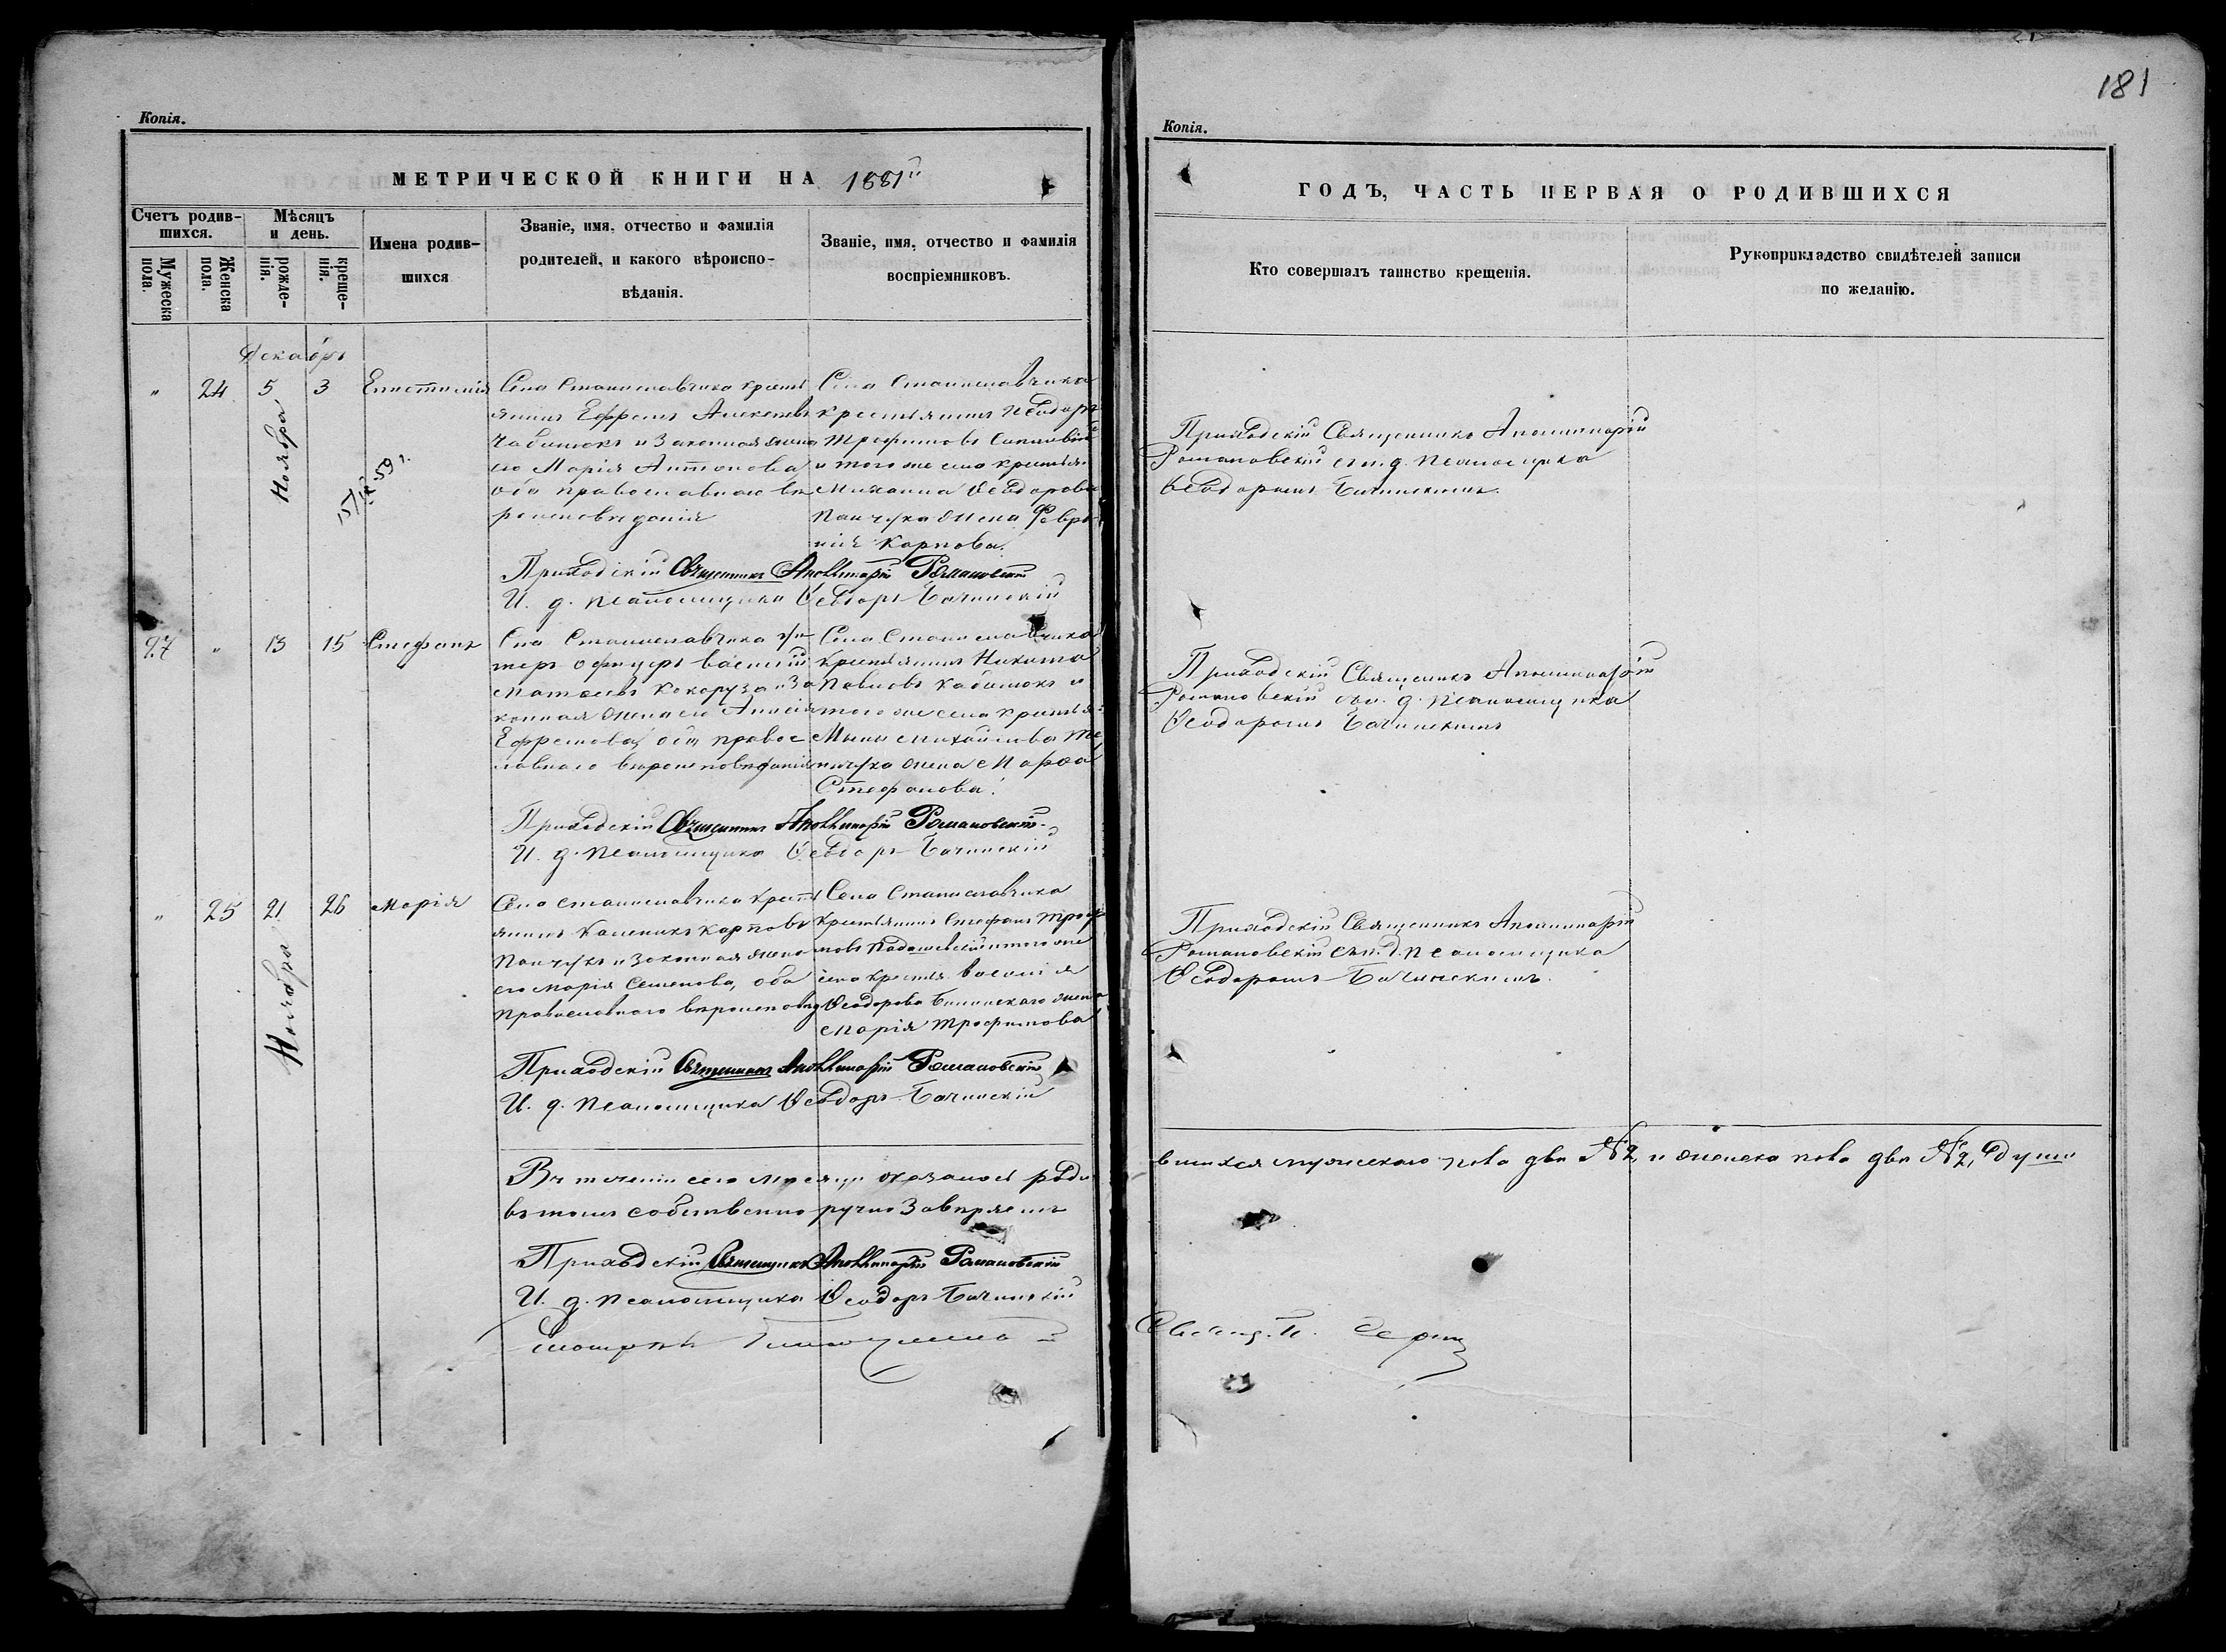 Копія.
МЕТРИЧЕСКОЙ КНИГИ НА 1881й
Счетъ родив-
шихся.
Мужеска
пола.
Женска
пола.
Мѣсяцъ
и день.
рожде-
нія.
креще-
нія.
Имена родив-
шихся
Званіе, имя, отчество и фамилія
родителей, и какого вѣроиспо-
вѣданія.
Званіе, имя, отчество и фамилія
воспріемниковъ.
Декабрь
" 24 5 3
Ноября
Епистимія
Села Станиславчика кресть
янинъ Ефремъ Алексѣевъ
и законная жена
его Марія Антонова
оба православнаго вѣ
роисповѣданія
Села Станиславчика
крестьянинъ Ѳеодоръ
Трофимовъ
и того же села крестья.
Михаила Ѳеодорова
Панчука жена Февро
нія Карпова.
Приходскій Священникъ Аполлинарій Романовскій
И. д. псаломщика Ѳеодоръ Бачинскій
27 " 13 15 Стефанъ
Села Станиславчика ун
теръ офицеръ Василій
Матѳеевъ Кокоруза и За
конная жена его
Ефремова, оба правос
лавнаго вѣроисповѣданія
Села Станиславчика
крестьянинъ Никита
Павловъ Кабатюкъ и
того же села крестья:
Мины Михайлова
жена Марѳа
Стефанова.
Приходскій Священникъ Аполлинарій Романовскій
И. д. псаломщика Ѳеодоръ Бачинскій
" 25 21 26 Марія
Ноября
Села Станиславчика крест
янинъ Каленикъ Карповъ
Панчукъ и Законная жена
его Марія Семенова, оба
православнаго вѣроисповѣд
Села Станиславчика
Крестьянинъ Стефанъ Троф
мовъ и того же
села крестья. Василія
Ѳеодорова жена
Марія Трофимова
Приходскій Священникъ Аполлинарій Романовскій
И. д. псаломщика Ѳеодоръ Бачинскій
Въ теченіи сего мѣсяца оказалось роди
въ томъ собственно ручно Завѣряемъ
Приходскій Священникъ Аполлинарій Романовскій
И. д. псаломщика Ѳеодоръ Бачинскій
181
Копія.
ГОДЪ, ЧАСТЬ ПЕРВАЯ О РОДИВШИХСЯ
Кто совершалъ таинство крещенія.
Рукоприкладство свидѣтелей записи
по желанію.
Приходскій Священникъ Аполлинарій
Романовскій съ и. д. псаломщика
Ѳеодоромъ Бачинскимъ.
Приходскій Священникъ Аполлинарій
Романовскій съ и. д. псаломщика
Ѳеодоромъ Бачинскимъ
Приходскій Священникъ Аполлинарій
Романовскій съ и. д. псаломщика
Ѳеодоромъ Бачинскимъ.
вшихся мужескаго пола два №2, и женска пола два №2, души